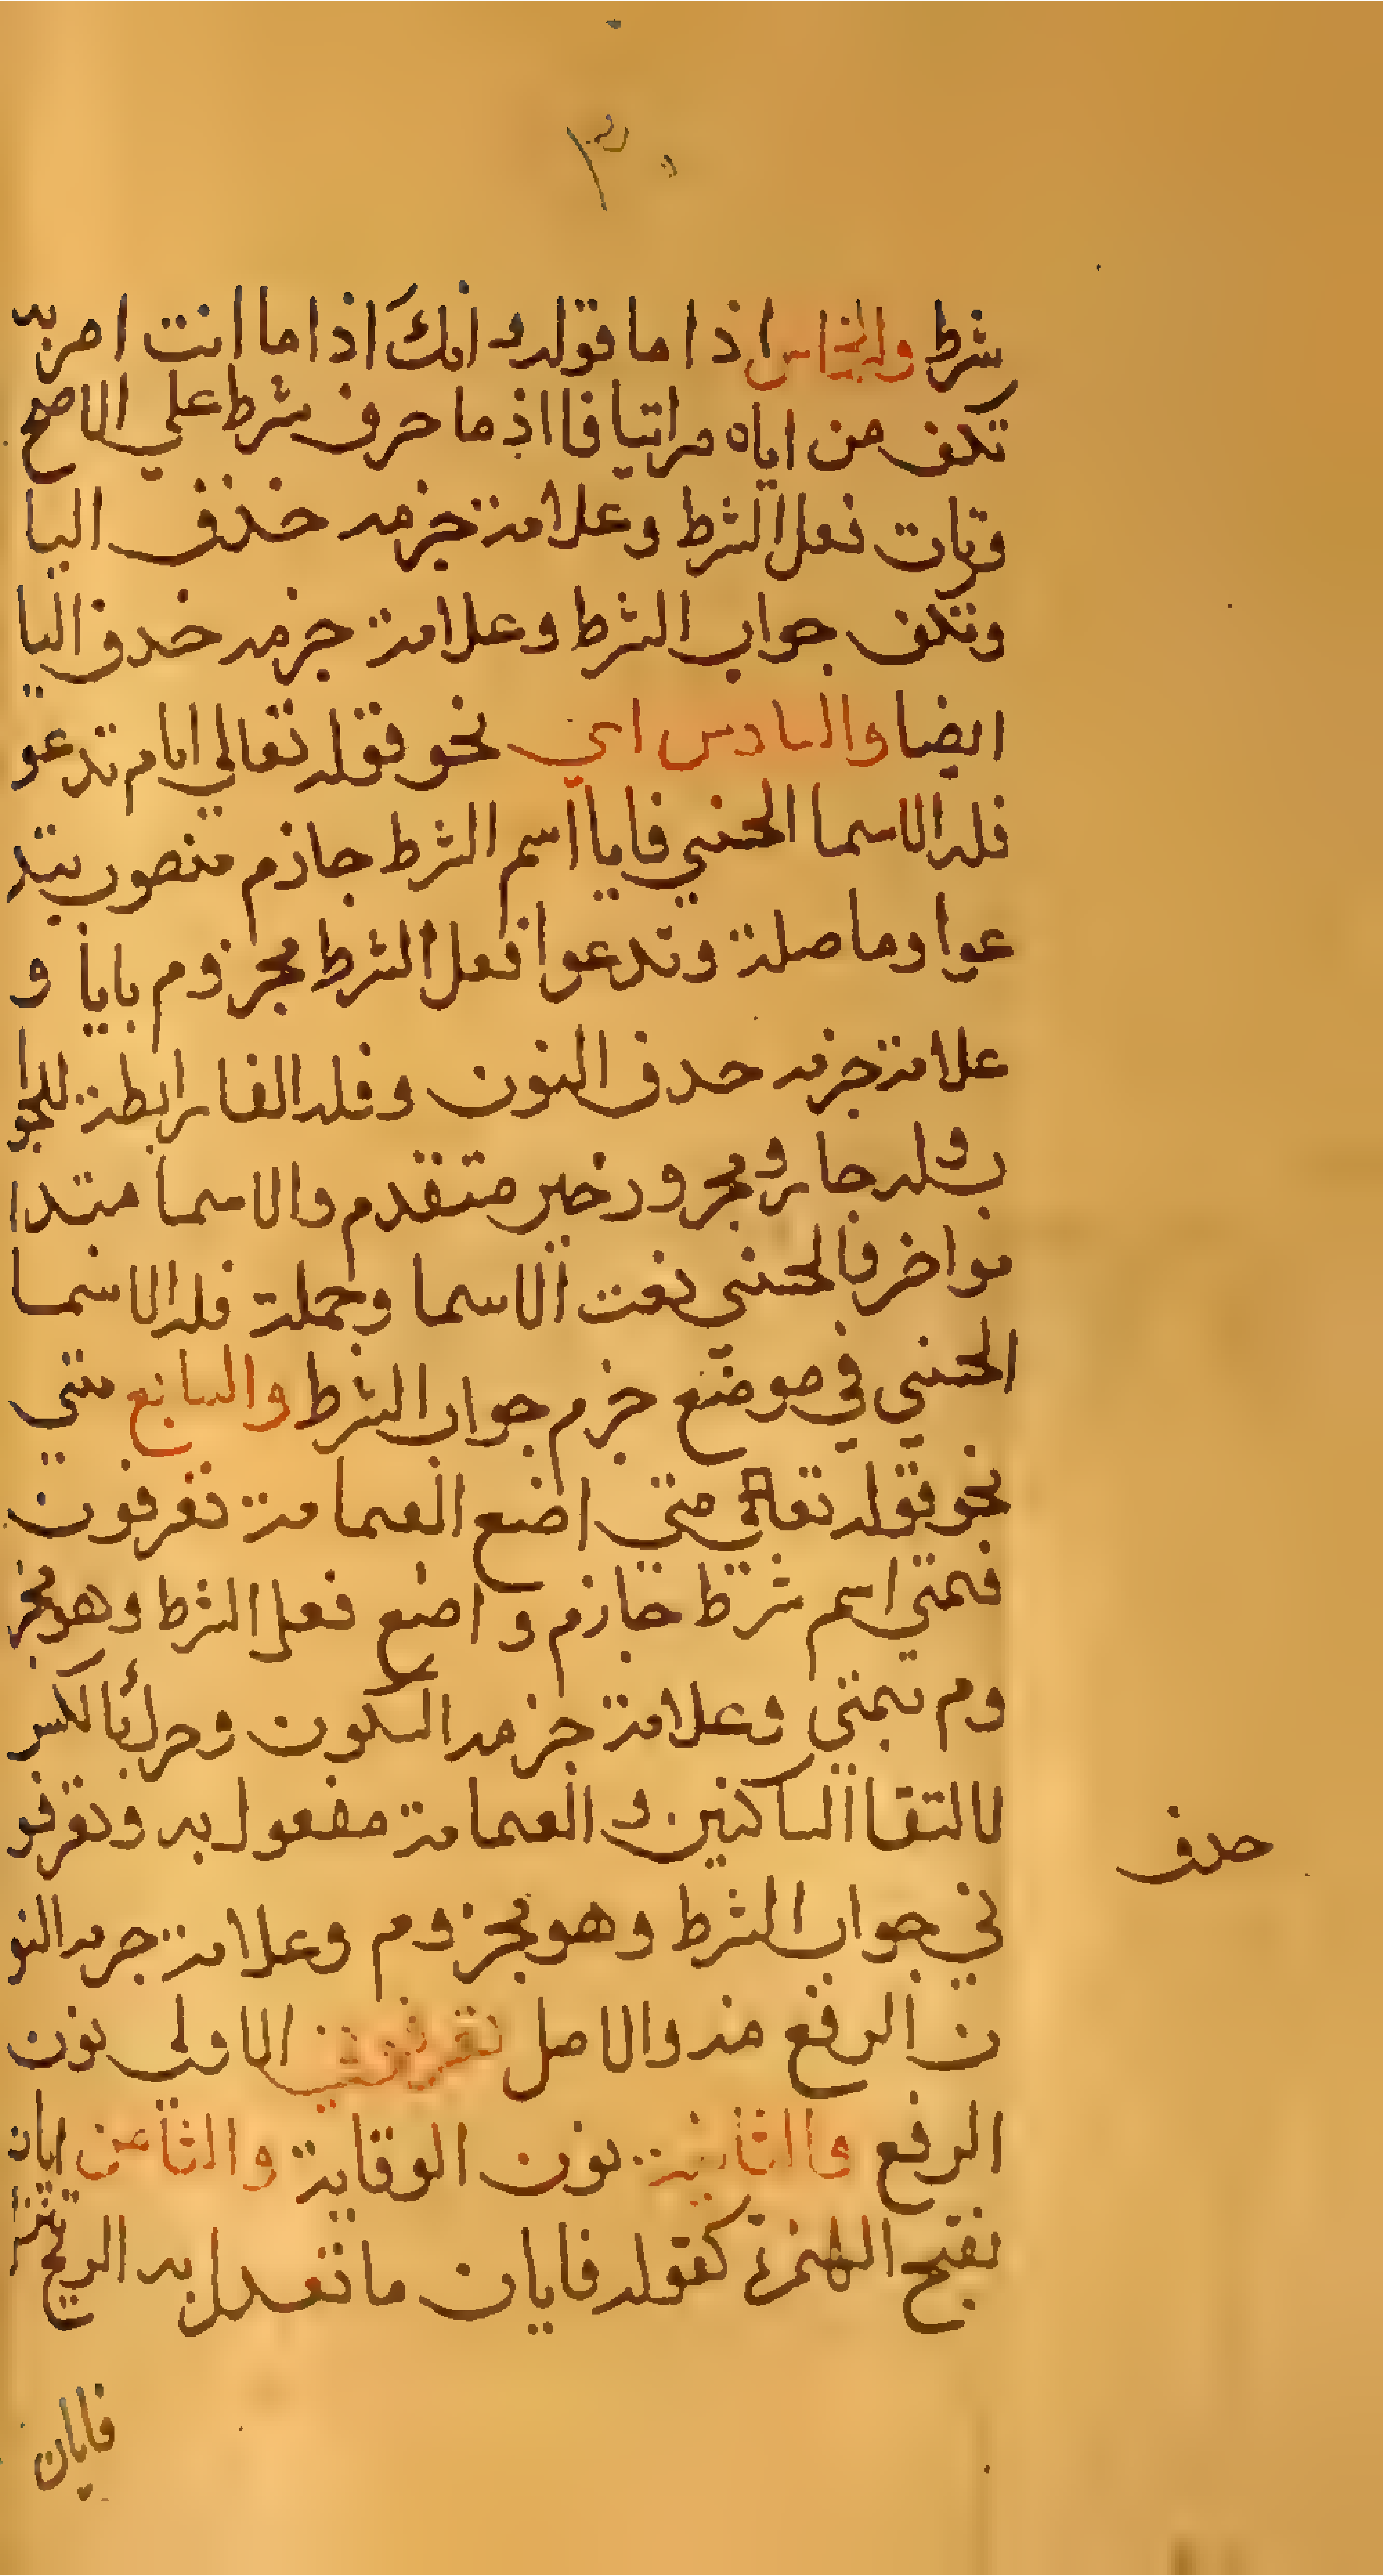 شرط والخامس اذاما قوله انك اذاما انت امر به
تكف من اياه مراتيا فااذما حرف شرط علي الاصح
وتات فعل الشرط وعلامة جزمه خذف اليا
وتلف جواب الشرط وعلامة جزمه خدف اليا
ايضا والسادس اي نحو قوله تعالي اياما تدعو
فله الاسما الحسني فايا اسم الشرط جازم منصوب بتد
عوا وما صلة وتدعوا فعل الشرط مجزوم باياً و
علامة جزمه حدف النون وفله الفا رابطة للجوا
ب وله جار ومجرور خبر متقدم والاسما مبتدا
مواخر فالحسني نعت الاسما وجملة فله الاسما
الحسني في موضع جزم جواب الشرط والسابع متي
نحو قوله تعالي متي اضع العمامة تعرفون
فمتي اسم شرط جازم و اضع فعل الشرط وهو مجز
وم بمتي وعلامة جزمه السكون وحرك بالكسر
لالتقا الساكنين و العمامة مفعول به وتعرفو
ني جواب الشرط وهو مجزوم وعلامة جزمه النو
حدف
ن الرفع منه والاصل تعرفونني الاولي نون
الرفع والثانية نون الوقاية والثامن ايان
بفتح الهمزة كقوله فايان ما تعدل به الريح تنزل
فايان